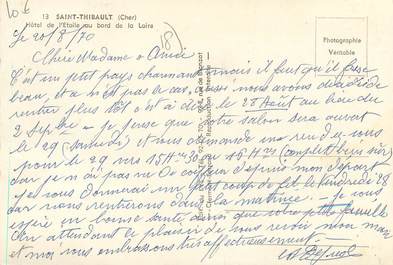 13 SAINT-THIBAULT (Cher)
Hôtel de l'Etoile au bord de la Loire
Le 20/8/70
Photographie
Véritable
Chère Madame & Amie
C'est un petit pays charmant mais il faut qu'il fasse
beau, et ce n'est pas le cas. Aussi nous avons décidé de
rentrer plus tôt c'est à dire le 28 Août au lieu du
2 Septbre - Je pense que votre salon sera ouvert
le 29 (samedi) et vous demande un rendez-vous
pour le 29 vers 15H30 ou 16H (complet)
car je n'ai pas vu de coiffeur depuis mon départ
Je vous donnerai un petit coup de fil le Vendredi 28
car nous rentrerons dans la matinée. Je vous
espère en bonne santé ainsi que votre petite famille
En attendant le plaisir de vous revoir mon mari
et moi vous embrassons très affectueusement.